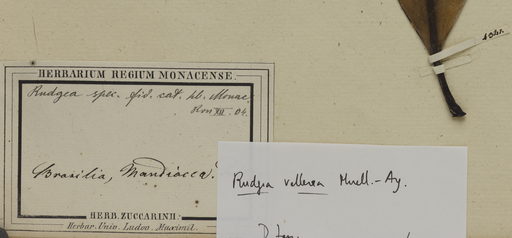 1041.
HERBARIUM REGIUM MONACENSE.
Rudgea spec. fid. cat. hb. Monac.
XII. 04.
Brasilia, Mandiocca.
HERB. ZUCCARINII.
Herbar. Univ. Ludov. Maximil.
Rudgea vellerea Muell.-Ag.